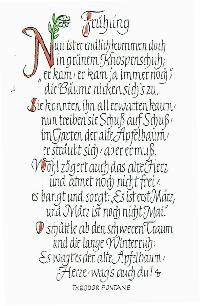 Frühling
Nun ist er endlich kommen doch
in grünem Knospenschuh;
"er kam, er kam ja immer noch,"
die Bäume nicken sich's zu.
Sie konnten ihn all erwarten kaum,
nun treiben sie Schuß auf Schuß;
im Garten der alte Apfelbaum,
er sträubt sich, aber er muß.
Wohl zögert auch das alte Herz
und atmet noch nicht frei,
es bangt und sorgt: "Es ist erst März,
und März ist noch nicht Mai."
O schüttle ab den schweren Traum
und die lange Winterruh:
Es wagt es der alte Apfelbaum,
Herze, wag's auch du!
THEODOR FONTANE